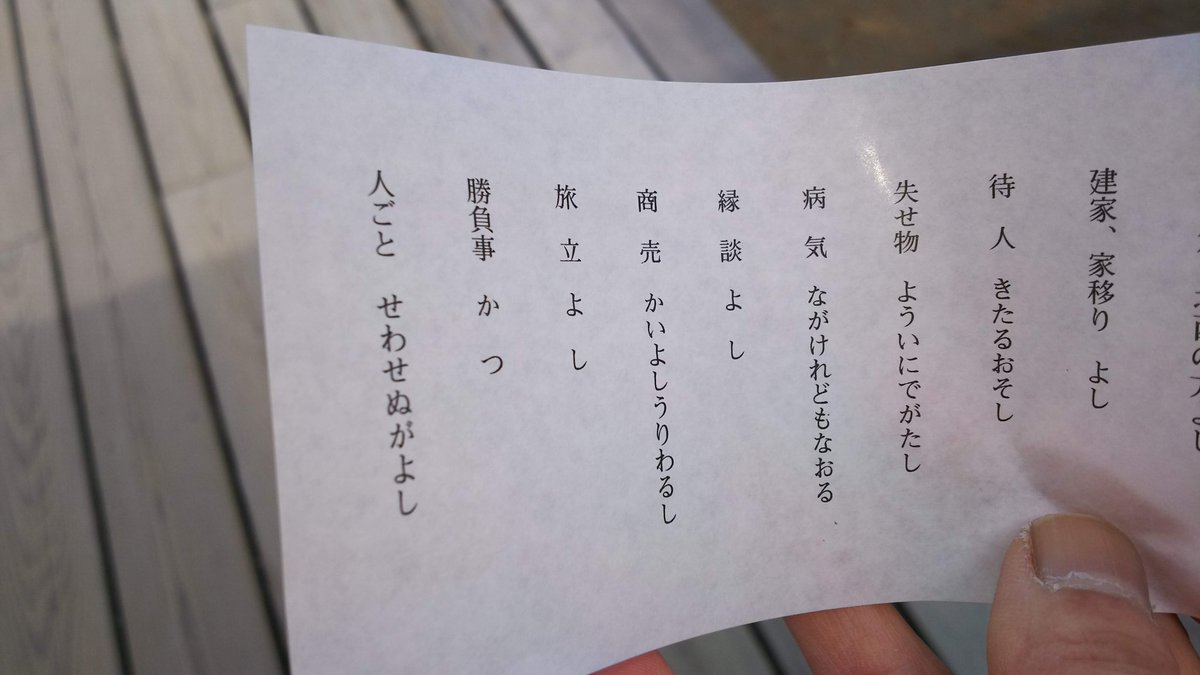 建家、家移り よし
待人 きたるおそし
失せ物 よういにでがたし
病気 ながけれどもなおる
縁談 よし
商売 かいよしうりわるし
旅立 よし
勝負事 かつ
人ごと せわせぬがよし